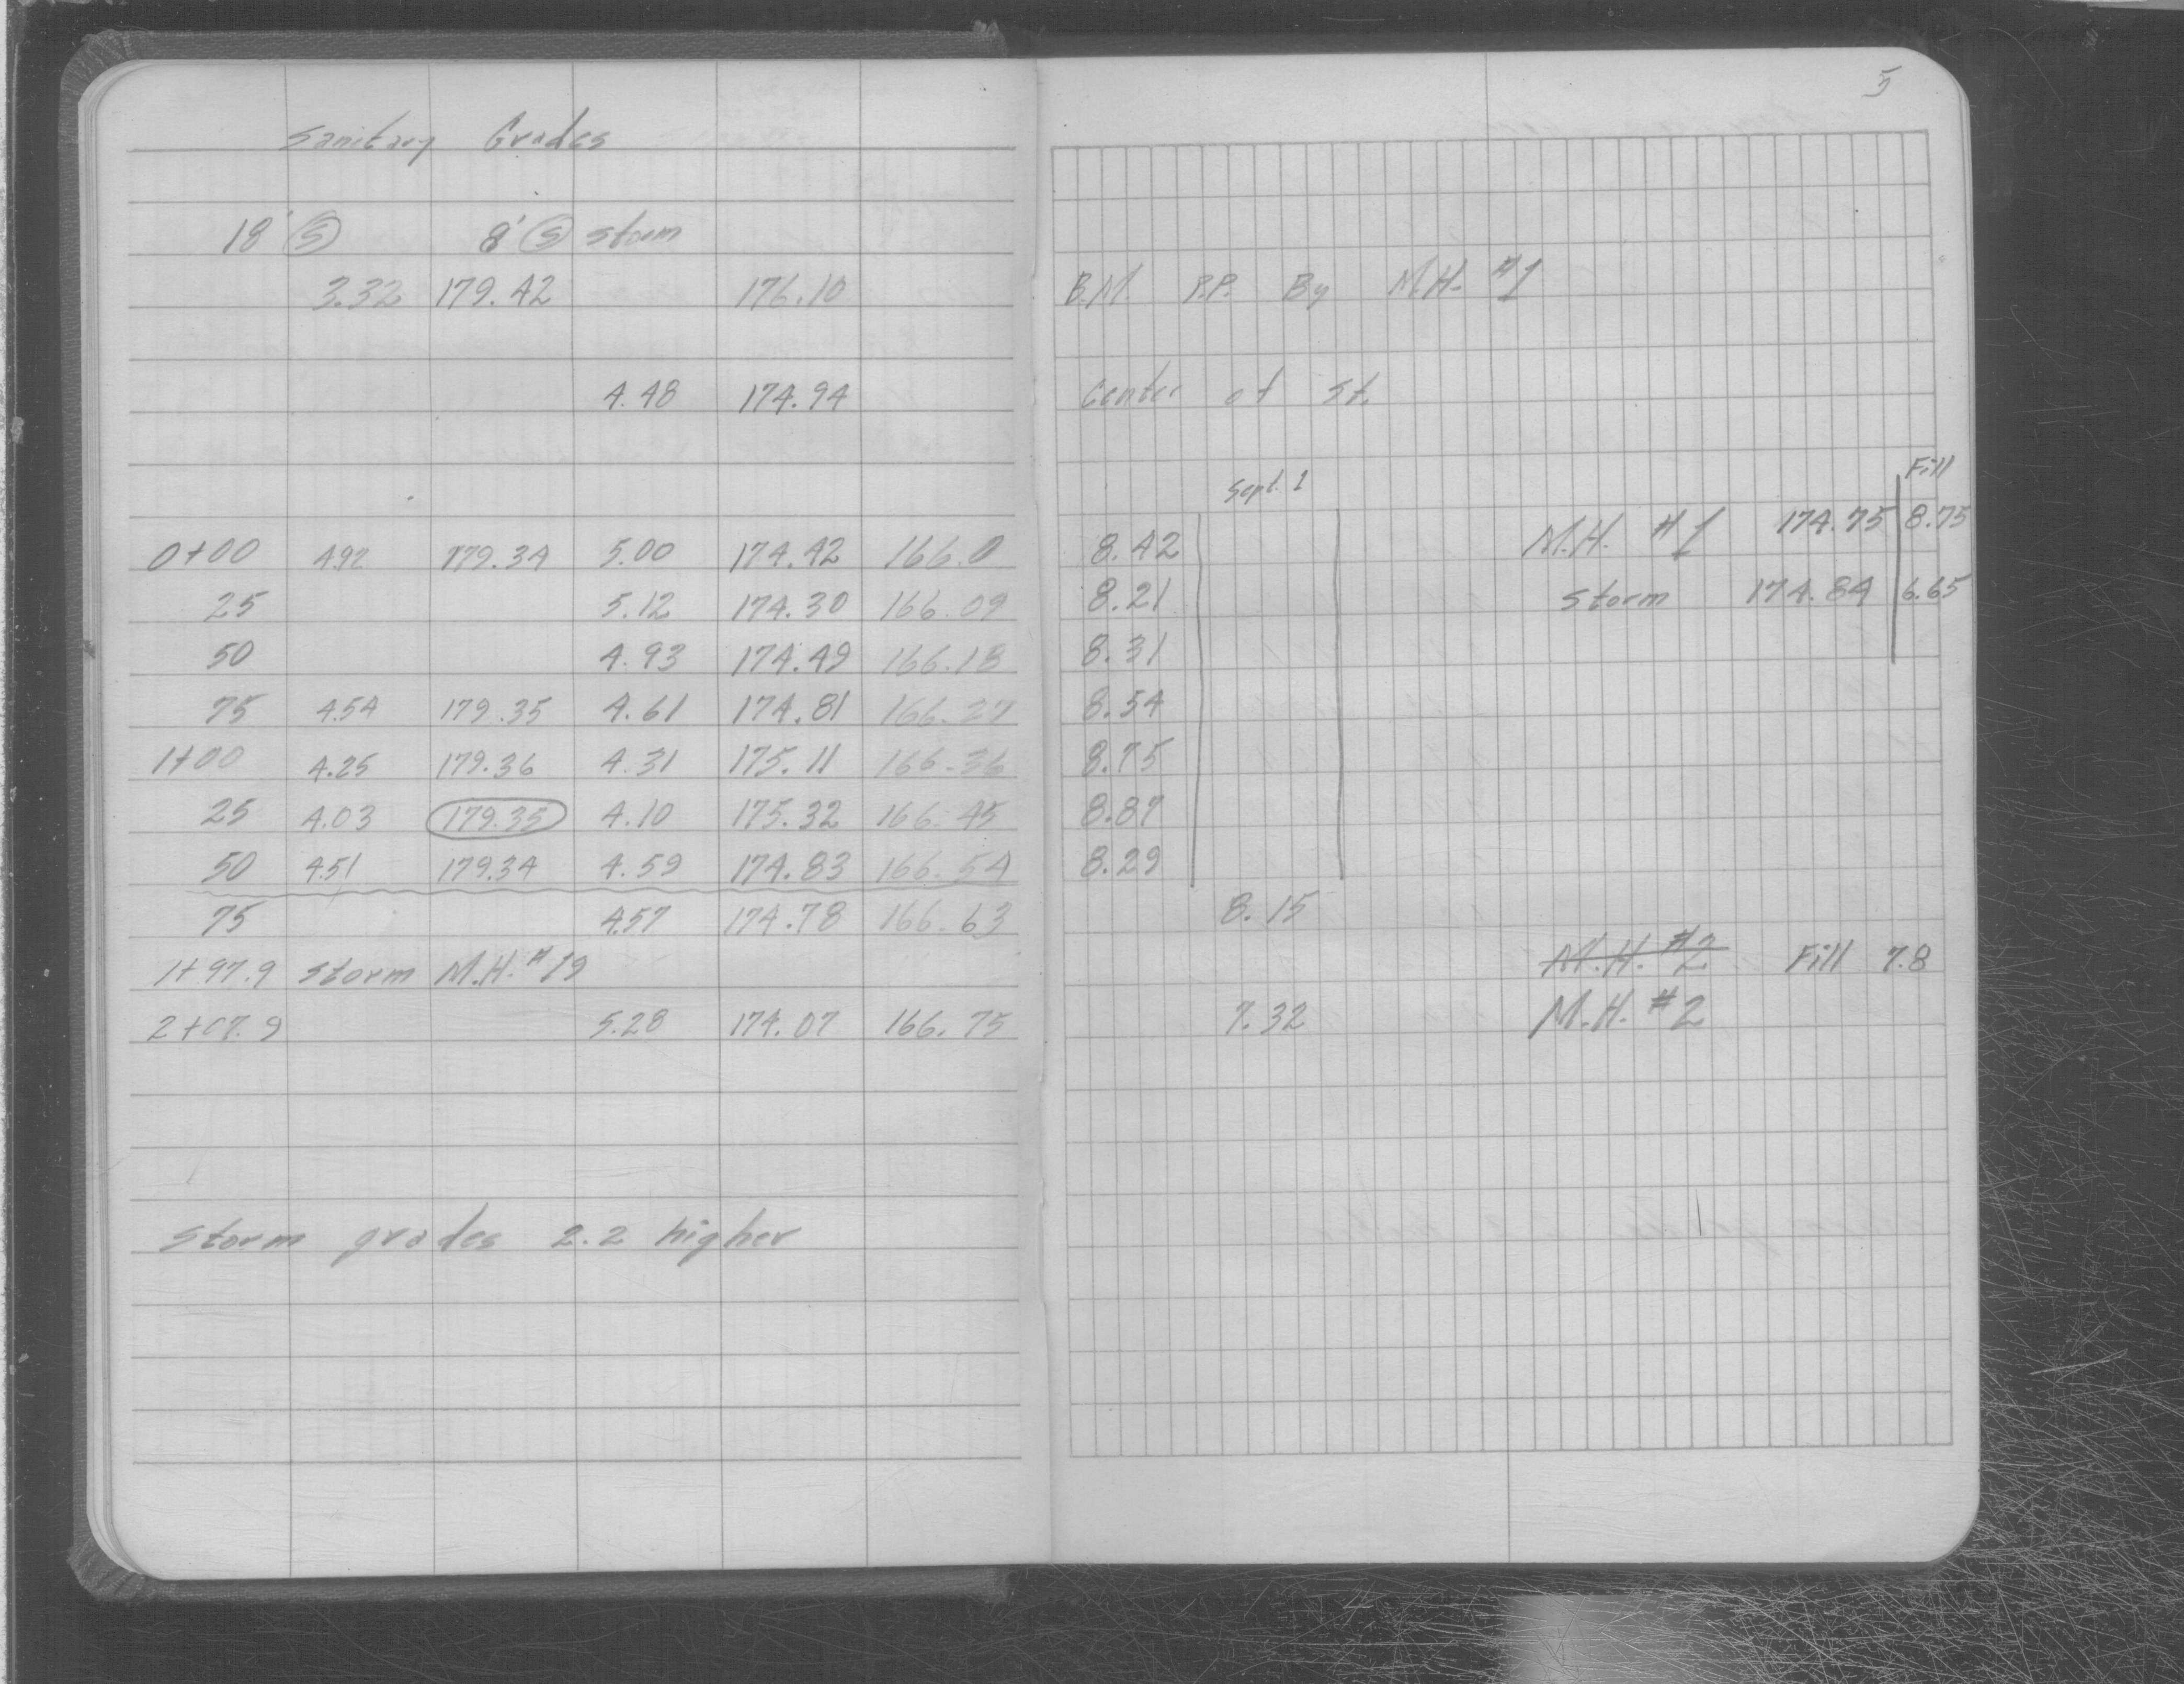 Sanitary Grades
18' S 8' S storm
3.32 179.42 176.10
4.48 174.94
0+00 4.92 179.34 5.00 174.42 166.0
25 5.12 174.30 166.09
50 4.93 174.49 166.18
75 4.54 179.35 4.61 174.81 166.27
1+00 4.25 179.36 4.31 175.11 166.36
25 4.03 179.35 4.10 175.32 166.45
50 4.51 179.34 4.59 174.83 166.54
75 4.57 174.78 166.63
1+97.9 storm M.H. #19
2+07.9 5.28 174.07 166.75
storm grades 2.2 higher
5
B.M. P.P. By M.H. #1
Center of St.
Sept. 1 Fill
8.42 M.H. #1 174.75 8.75
8.21 storm 174.84 6.65
8.31
8.54
8.75
8.87
8.29
8.15
M.H. #2 Fill 7.8
7.32 M.H. #2